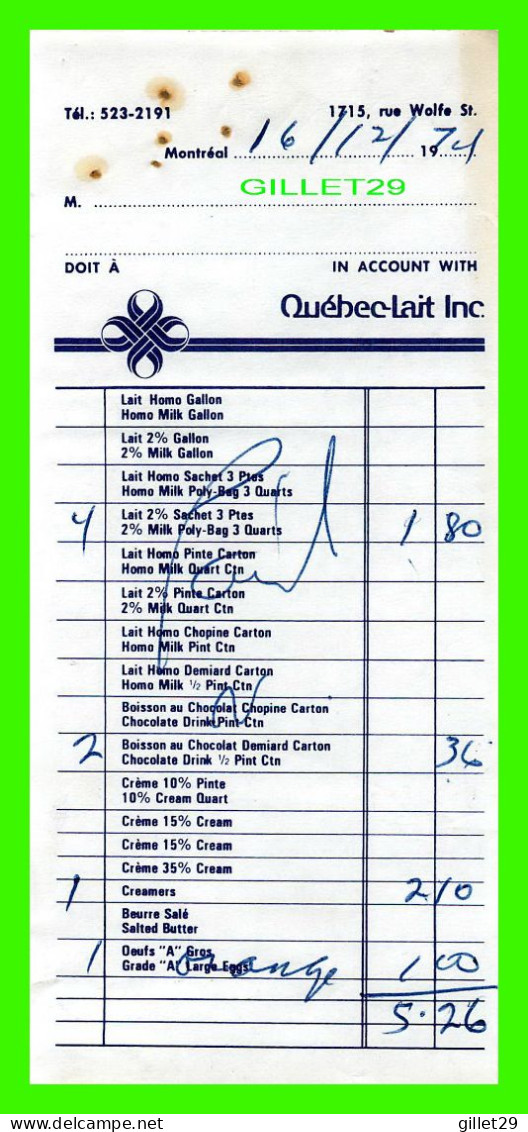 Tél.: 523-2191 1715, rue Wolfe St.
Montréal 16/12/ 1974
GILLET29
M.
DOIT À IN ACCOUNT WITH
Québec-Lait Inc.
Lait Homo Gallon
Homo Milk Gallon
Lait 2% Gallon
2% Milk Gallon
Lait Homo Sachet 3 Ptes
Homo Milk Poly-Bag 3 Quarts
4 Lait 2% Sachet 3 Ptes 1 80
2% Milk Poly-Bag 3 Quarts
Lait Homo Pinte Carton
Homo Milk Quart Ctn
Paid
Lait 2% Pinte Carton
2% Milk Quart Ctn
Lait Homo Chopine Carton
Homo Milk Pint Ctn
Lait Homo Demiard Carton
Homo Milk ½ Pint Ctn
Boisson au Chocolat Chopine Carton
Chocolate Drink Pint Ctn
2 Boisson au Chocolat Demiard Carton 36
Chocolate Drink ½ Pint Ctn
Crème 10% Pinte
10% Cream Quart
Crème 15% Cream
Crème 15% Cream
Crème 35% Cream
1 Creamers 2 10
Beurre Salé
Salted Butter
1 Oeufs "A" Gros 1 00
Grade "A" Large Eggs
orange
5.26
gillet29